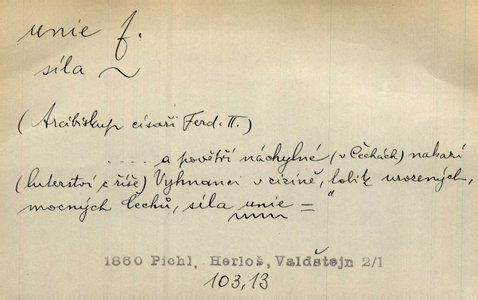 unie f.
síla ~
(Arcibiskup císaři Ferd. II.)
.... a povětří náchylné (v Čechách) nakazí
(luterství z říše) Vyhnanci v cizině, tolik urozených,
mocných Čechů, síla unie = "
1860 Pichl, Herloš, Valdštejn 2/1
103,13